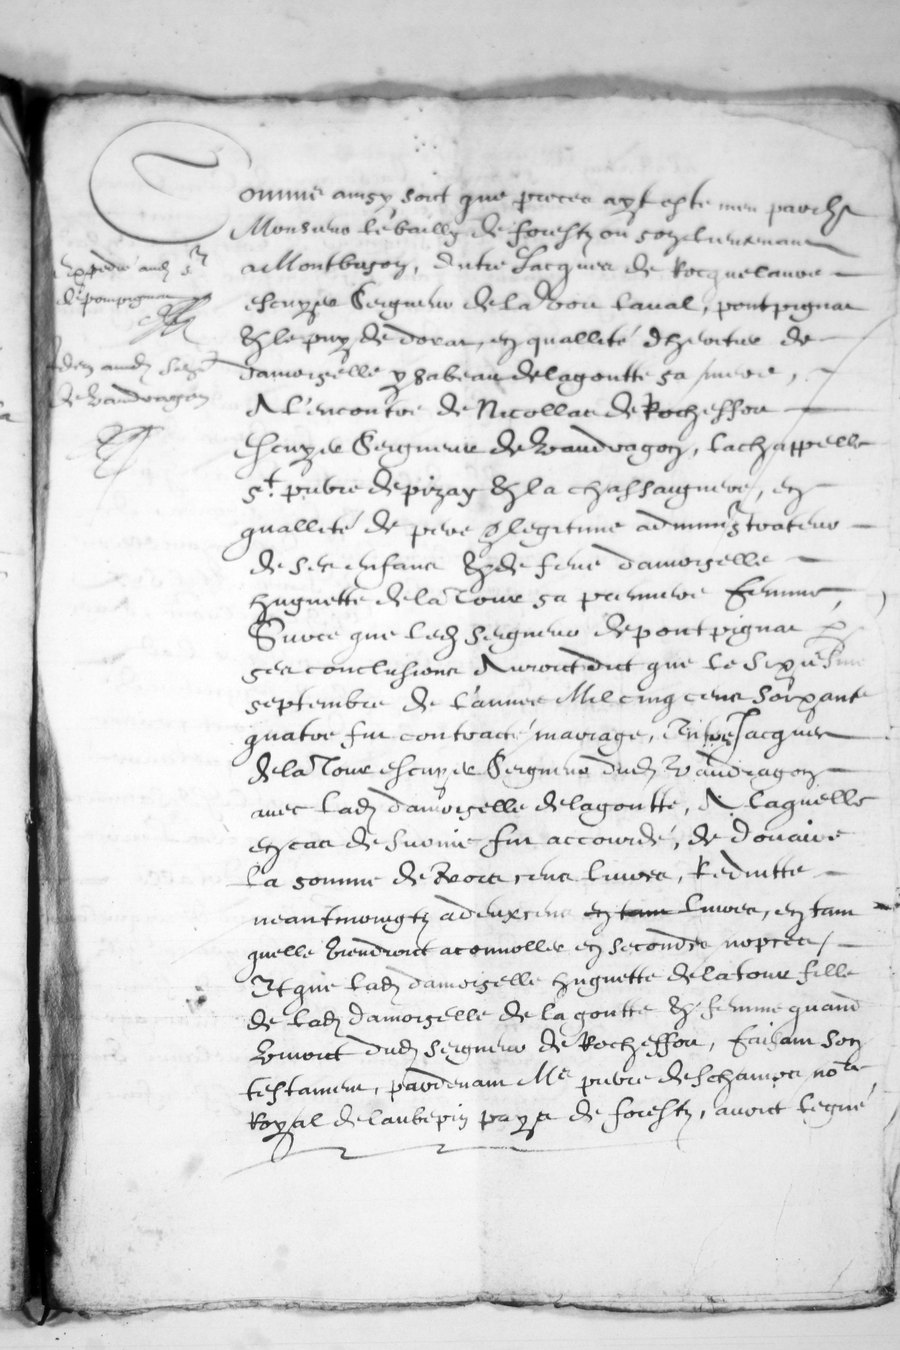 Comme ainsy soit que proces ayt este meu pardevt
Monsieur le bailly de forestz ou son lieutenant
a Montbrison, Entre Jacques de Rocquelaure
escuyer Seigneur de la Tour Laval, pontpignat
Et le puy de dorat, en quallité dheritier de
damoiselle ysabeau delagoutte sa mere,
A lencontre de Nicollas de Rocheffort
Escuyer Seigneur de Vaudragon, lachappelle
St. pierre depizay Et la chassaigniere, en
quallité de pere & legitime administrateur
de ses enfans Et de feue damoiselle
huguette delaTour sa premiere femme,
Surce que led Seigneur depontpignat p
ses conclusions Auroict dict que le sixiesme
septembre de lannee Mil cinq cens soixante
quatre fut contracté mariage, Entre Jacques
delaTour escuyer Seigneur dud Vaudragon
avec lad damoiselle delagoutte, A laquelle
en cas de survie fut accourdé, de douaire
la somme de Trois cens livres, Reduitte
neantmoingtz adeuxcens en tam livres, en tam
quelle viendroict aconvoller en secondes nopces,
Et que lad damoiselle huguette delatour fille
de lad damoiselle de lagoutte Et femme quand
vivoict dud seigneur de Rocheffort, faisant son
testament, pardevant Me pierre deschamps nore
Royal de laubepin pays de forestz, avoict legué
Expedié aud Sr
de pompignat
Idem aud Seigr
de Vaudragon